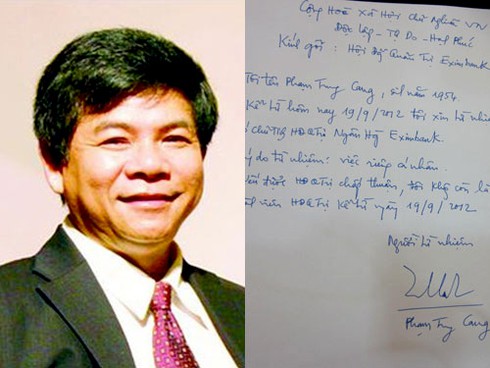 Cộng Hoà Xã Hội Chủ Nghĩa VN
Độc Lập - Tự Do - Hạnh Phúc
Kính gởi : Hội Đồng Quản Trị Eximbank
Tôi tên Phạm Trung Cang, sn năm 1954
kể từ hôm nay 19/9/2012 tôi xin từ nhiệm
chủ tịch HĐQTrị Ngân Hàng Eximbank.
do từ nhiệm: việc riêng cá nhân.
được HĐQTrị chấp thuận, tôi không còn là
viên HĐQTrị kể từ ngày 19/9/2012
Người từ nhiệm
Phạm Trung Cang